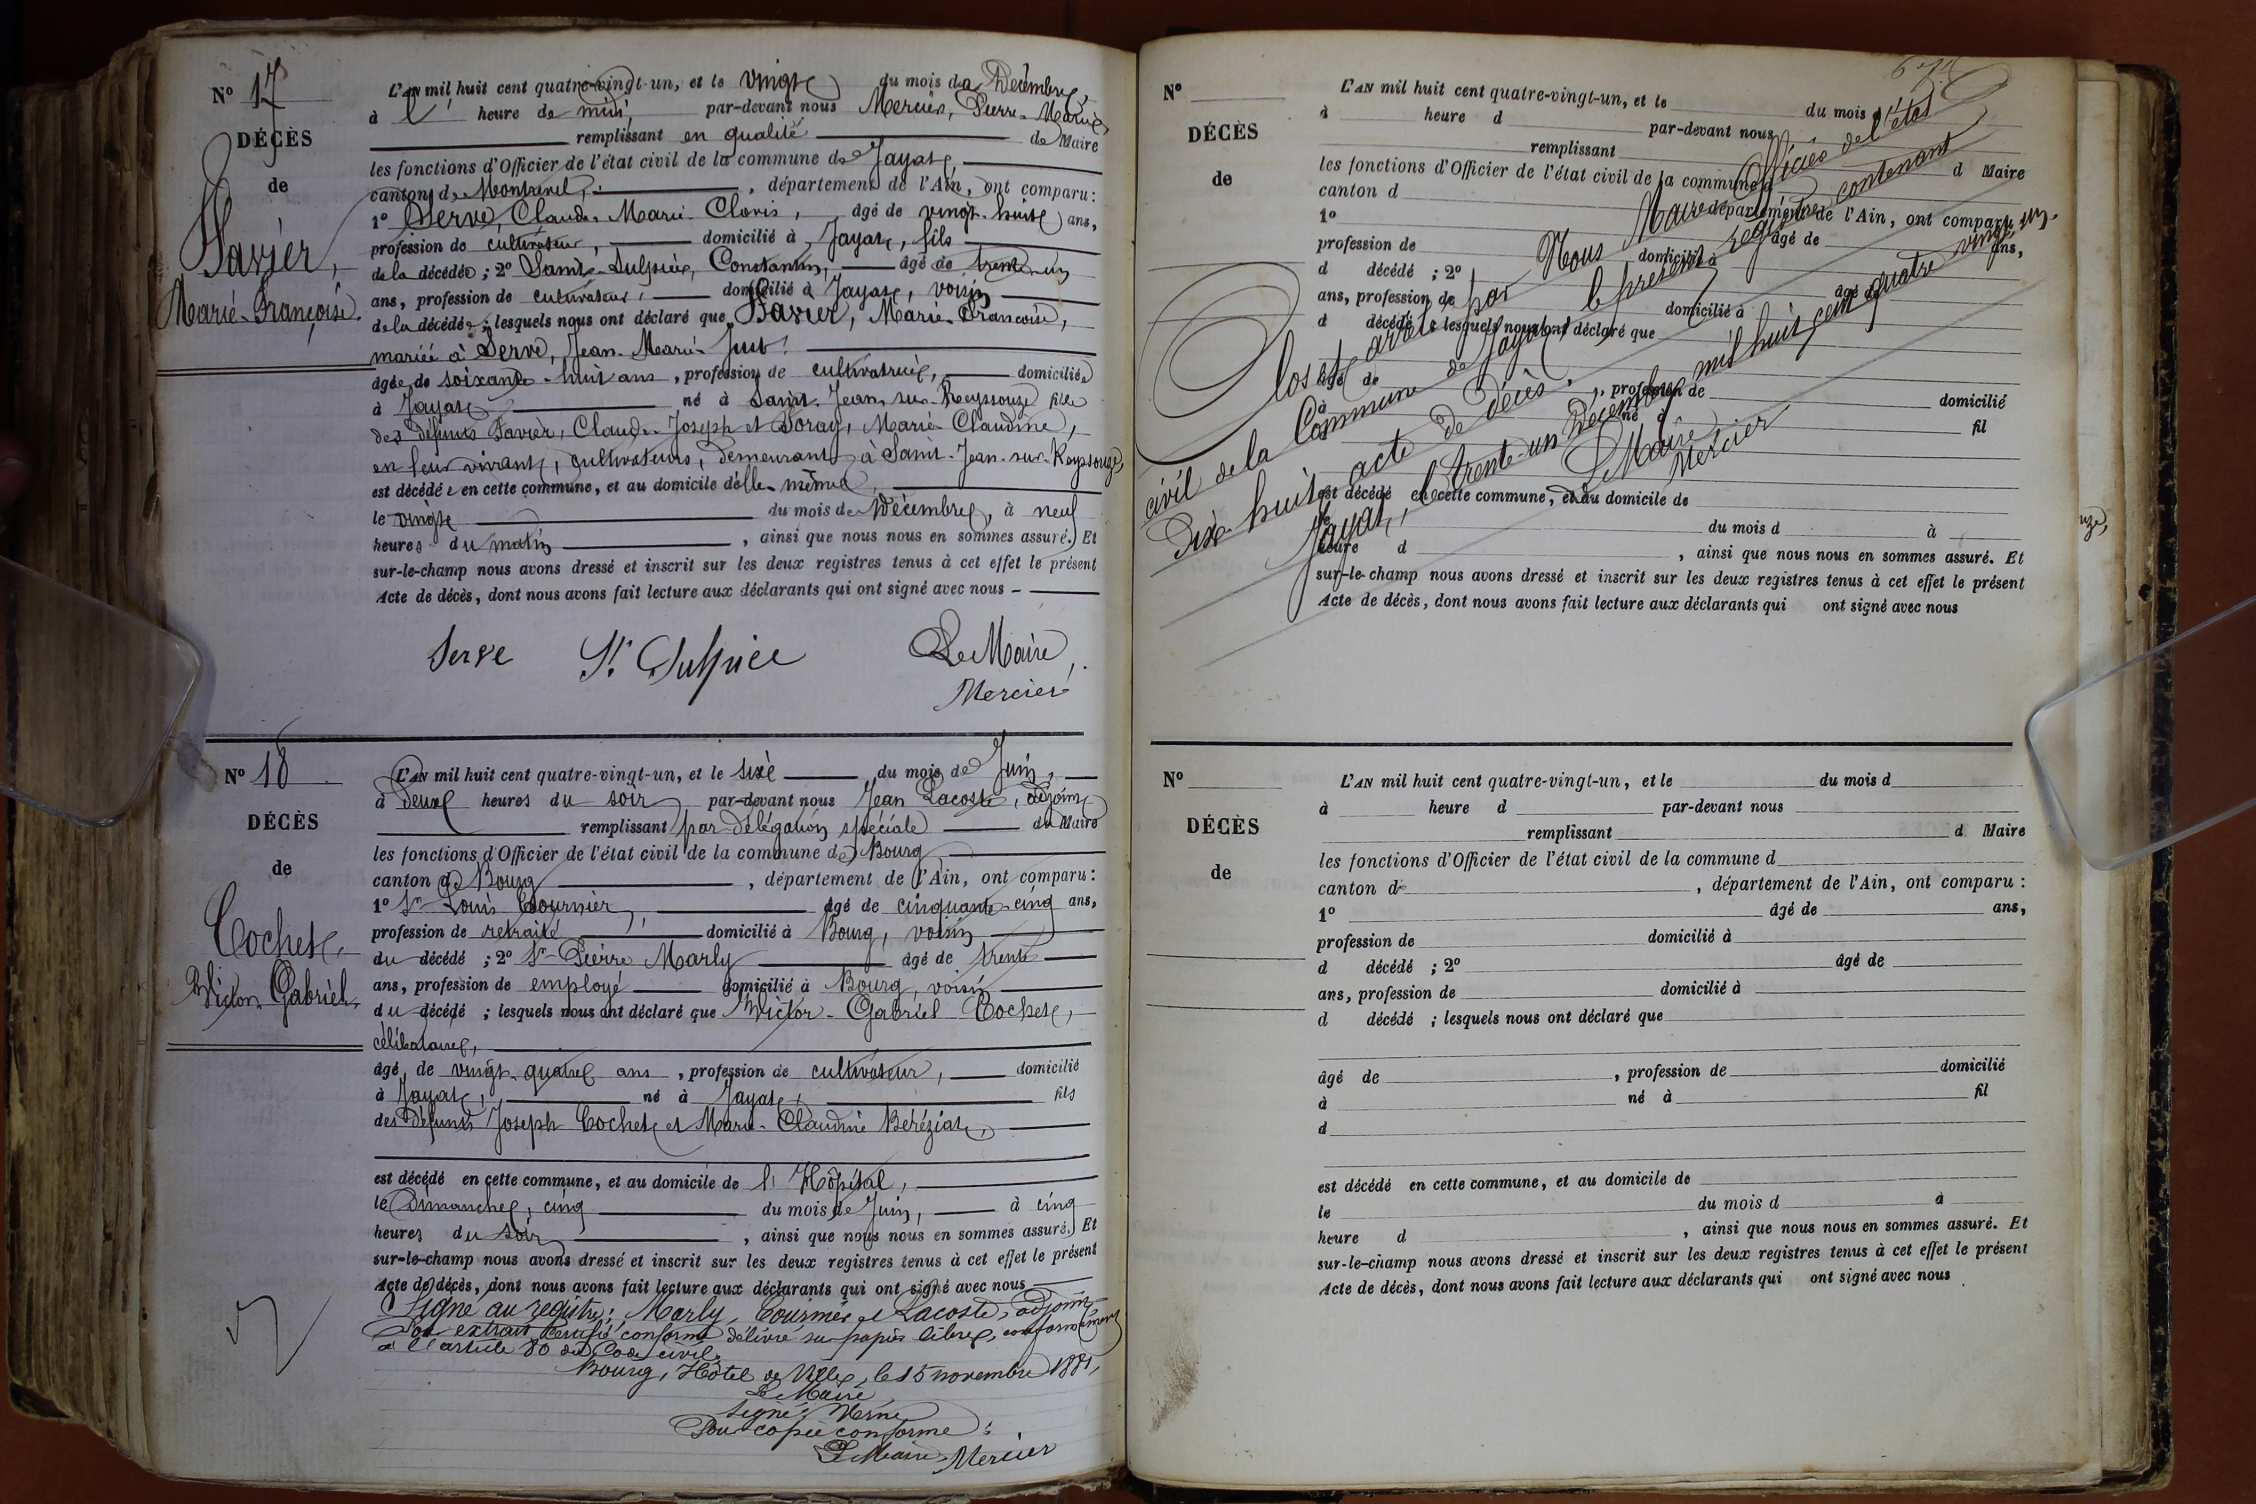 N° 17
DÉCÈS
de
Favier,
Marie-Françoise.
L'AN mil huit cent quatre-vingt-un, et le vingt du mois de Décembre,
à l' heure de midi, par-devant nous Mercier, Pierre-Marie,
remplissant en qualité de Maire
les fonctions d'Officier de l'état civil de la commune de Jayat,
canton de Montrevel, , département de l'Ain, ont comparu :
1° Serve, Claude-Marie-Clovis, âgé de vingt-huit ans,
profession de cultivateur, domicilié à Jayat, fils
de la décédée ; 2° Saint-Sulpice, Constantin, âgé de trente-un
ans, profession de cultivateur, domicilié à Jayat, voisin
de la décédée ; lesquels nous ont déclaré que Favier, Marie-Francoise,
mariée à Serve, Jean-Marie-Just.
âgée de soixante-huit ans, profession de cultivatrice, domiciliée
à Jayat né à Saint-Jean-sur-Reyssouze fille
des défunts Favier, Claude-Joseph et Soray, Marie-Claudine,
en leur vivant, cultivateurs, demeurant à Saint-Jean-sur-Reyssouze,
est décédée en cette commune, et au domicile d'elle-même,
le vingt du mois de Décembre, à neuf
heures du matin , ainsi que nous nous en sommes assuré. Et
sur-le-champ nous avons dressé et inscrit sur les deux registres tenus à cet effet le présent
Acte de décès, dont nous avons fait lecture aux déclarants qui ont signé avec nous
Serve St Sulpice Le Maire,
Mercier
N° 18
DÉCÈS
de
Cochet,
Victor-Gabriel.
L'AN mil huit cent quatre-vingt-un, et le six du mois de Juin,
à deux heures du soir par-devant nous Jean Lacoste, adjoint
remplissant par délégation spéciale du Maire
les fonctions d'Officier de l'état civil de la commune de Bourg,
canton de Bourg , département de l'Ain, ont comparu :
1° Sr Louis Cournier, âgé de cinquante-cinq ans,
profession de retraité domicilié à Bourg, voisin
du décédé ; 2° Sr Pierre Marly âgé de trente
ans, profession de employé domicilié à Bourg, voisin
du décédé ; lesquels nous ont déclaré que Victor-Gabriel Cochet,
célibataire,
âgé de vingt-quatre ans, profession de cultivateur, domicilié
à Jayat, né à Jayat, fils
des défunts Joseph Cochet et Marie-Claudine Béréziat,
est décédé en cette commune, et au domicile de l'Hôpital,
le Dimanche, cinq du mois de Juin, à cinq
heures du soir , ainsi que nous nous en sommes assuré. Et
sur-le-champ nous avons dressé et inscrit sur les deux registres tenus à cet effet le présent
Acte de décès, dont nous avons fait lecture aux déclarants qui ont signé avec nous
Signé au registre : Marly, Cournier et Lacoste, adjoint
Pour extrait certifié conforme délivré sur papier libre, conformément
à l'article 80 du Code civil.
Bourg, Hôtel de Ville, le 15 novembre 1881,
Le Maire
Signé : Verne
Pour copie conforme :
Le Maire, Mercier
N°
DÉCÈS
de
L'AN mil huit cent quatre-vingt-un, et le du mois d
à heure d par-devant nous
remplissant d Maire
les fonctions d'Officier de l'état civil de la commune d
canton d , département de l'Ain, ont comparu :
1° âgé de ans,
profession de domicilié à
d décédé ; 2° âgé de
ans, profession de domicilié à
d décédé ; lesquels nous ont déclaré que
âgé de , profession de domicilié
à né à fil
d
est décédé en cette commune, et au domicile de
le du mois d à
heure d , ainsi que nous nous en sommes assuré. Et
sur-le-champ nous avons dressé et inscrit sur les deux registres tenus à cet effet le présent
Acte de décès, dont nous avons fait lecture aux déclarants qui ont signé avec nous
Clos et arrêté par Nous Maire Officier de l'état
civil de la Commune de Jayat, le présent registre contenant
Dix-huit acte de décès.
Jayat, le trente-un Décembre mil huit cent quatre vingt un.
Le Maire
Mercier
N°
DÉCÈS
de
L'AN mil huit cent quatre-vingt-un, et le du mois d
à heure d par-devant nous
remplissant d Maire
les fonctions d'Officier de l'état civil de la commune d
canton d , département de l'Ain, ont comparu :
1° âgé de ans,
profession de domicilié à
d décédé ; 2° âgé de
ans, profession de domicilié à
d décédé ; lesquels nous ont déclaré que
âgé de , profession de domicilié
à né à fil
d
est décédé en cette commune, et au domicile de
le du mois d à
heure d , ainsi que nous nous en sommes assuré. Et
sur-le-champ nous avons dressé et inscrit sur les deux registres tenus à cet effet le présent
Acte de décès, dont nous avons fait lecture aux déclarants qui ont signé avec nous